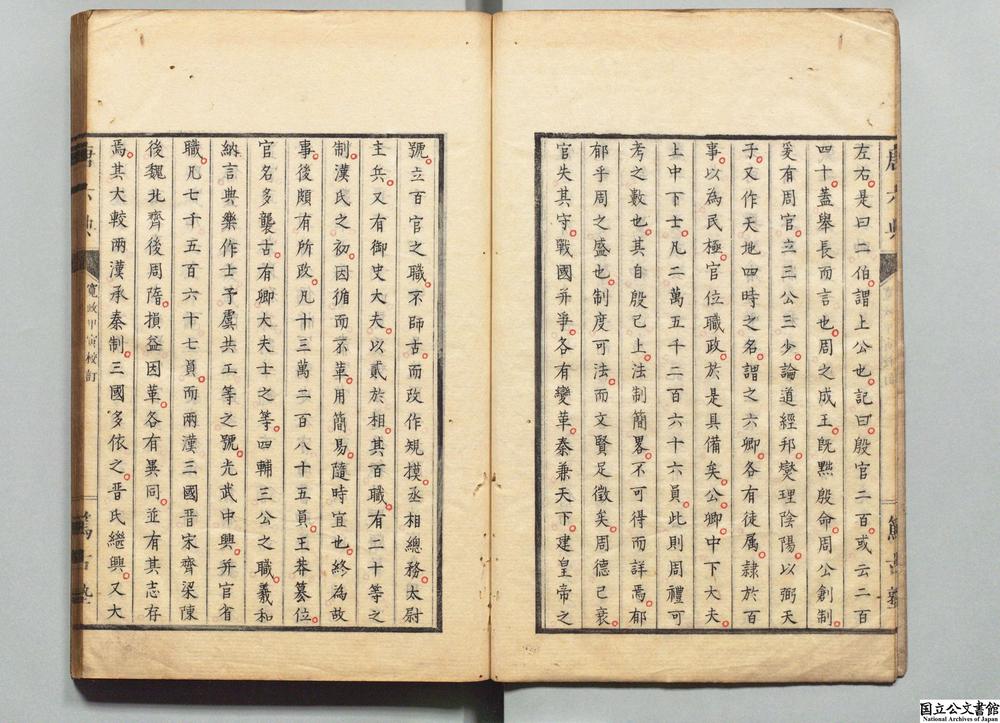 左右是曰二伯謂上公也記曰殷官二百或云二百
四十蓋舉長而言也周之成王既黜殷命周公創制
爰有周官立三公三少論道經邦燮理陰陽以弼天
子又作天地四時之名謂之六卿各有徒属隷於百
事以為民極官位職政於是具備矣公卿中下大夫
上中下士凡二萬五千二百六十六員此則周禮可
考之數也其自殷已上法制簡畧不可得而詳焉郁
郁乎周之盛也制度可法而文賢足徵矣周德已衰
官失其守戰國并爭各有變革秦兼天下建皇帝之
號立百官之職不師古而改作規摸丞相總務太尉
主兵又有御史大夫以貳於相其百職有二十等之
制漢氏之初因循而不革用簡易隨時宜也終為故
事後頗有所改凡十三萬二百八十五員王莽篡位
官名多襲古有卿大夫士之等四輔三公之職羲和
納言典樂作士予虞共工等之號光武中興并官省
職凡七千五百六十七員而兩漢三國晉宋齊梁陳
後魏北齊後周隋損益因革各有異同並有其志存
焉其大較兩漢承秦制三國多依之晉氏繼興又大
唐六典
寛政甲寅校訂
國立公文書館
National Archives of Japan